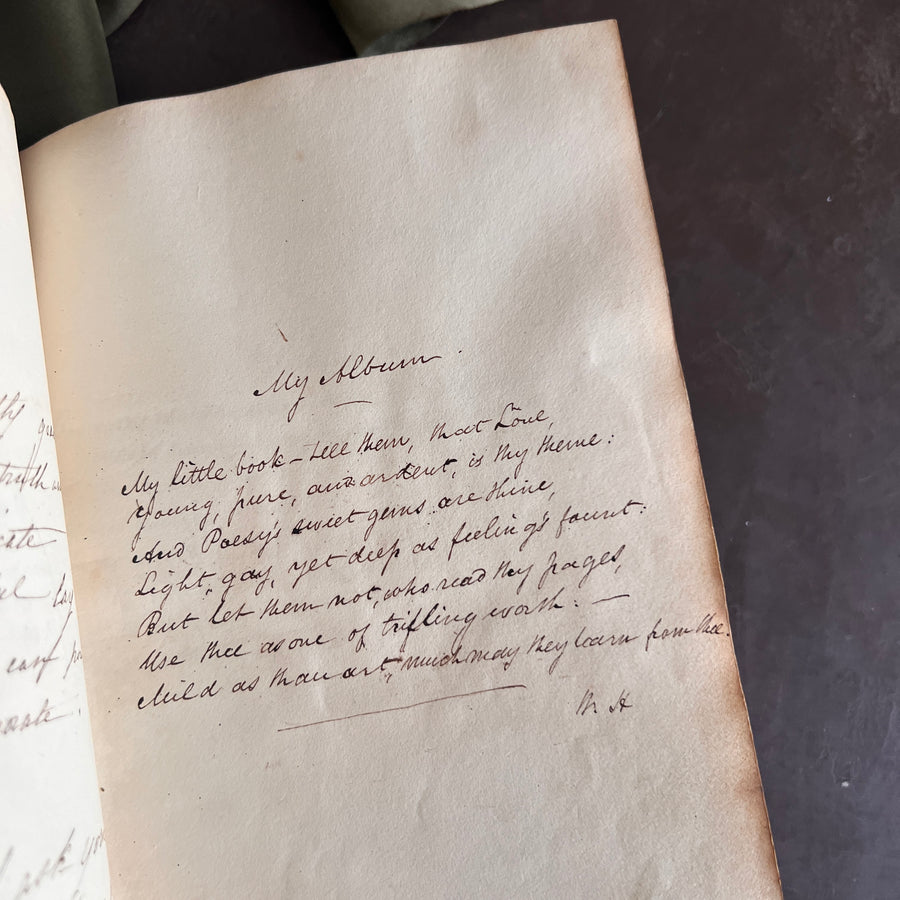 My Album.
My little book – tell them, that Love,
Young, pure, and ardent, is thy theme:
And Poesy's sweet gems are thine,
Light, gay, yet deep as feeling's fount:
But let them not, who read thy pages,
Use thee as one of trifling worth: —
Mild as thou art, much may they learn from thee.
M H
truth
ask